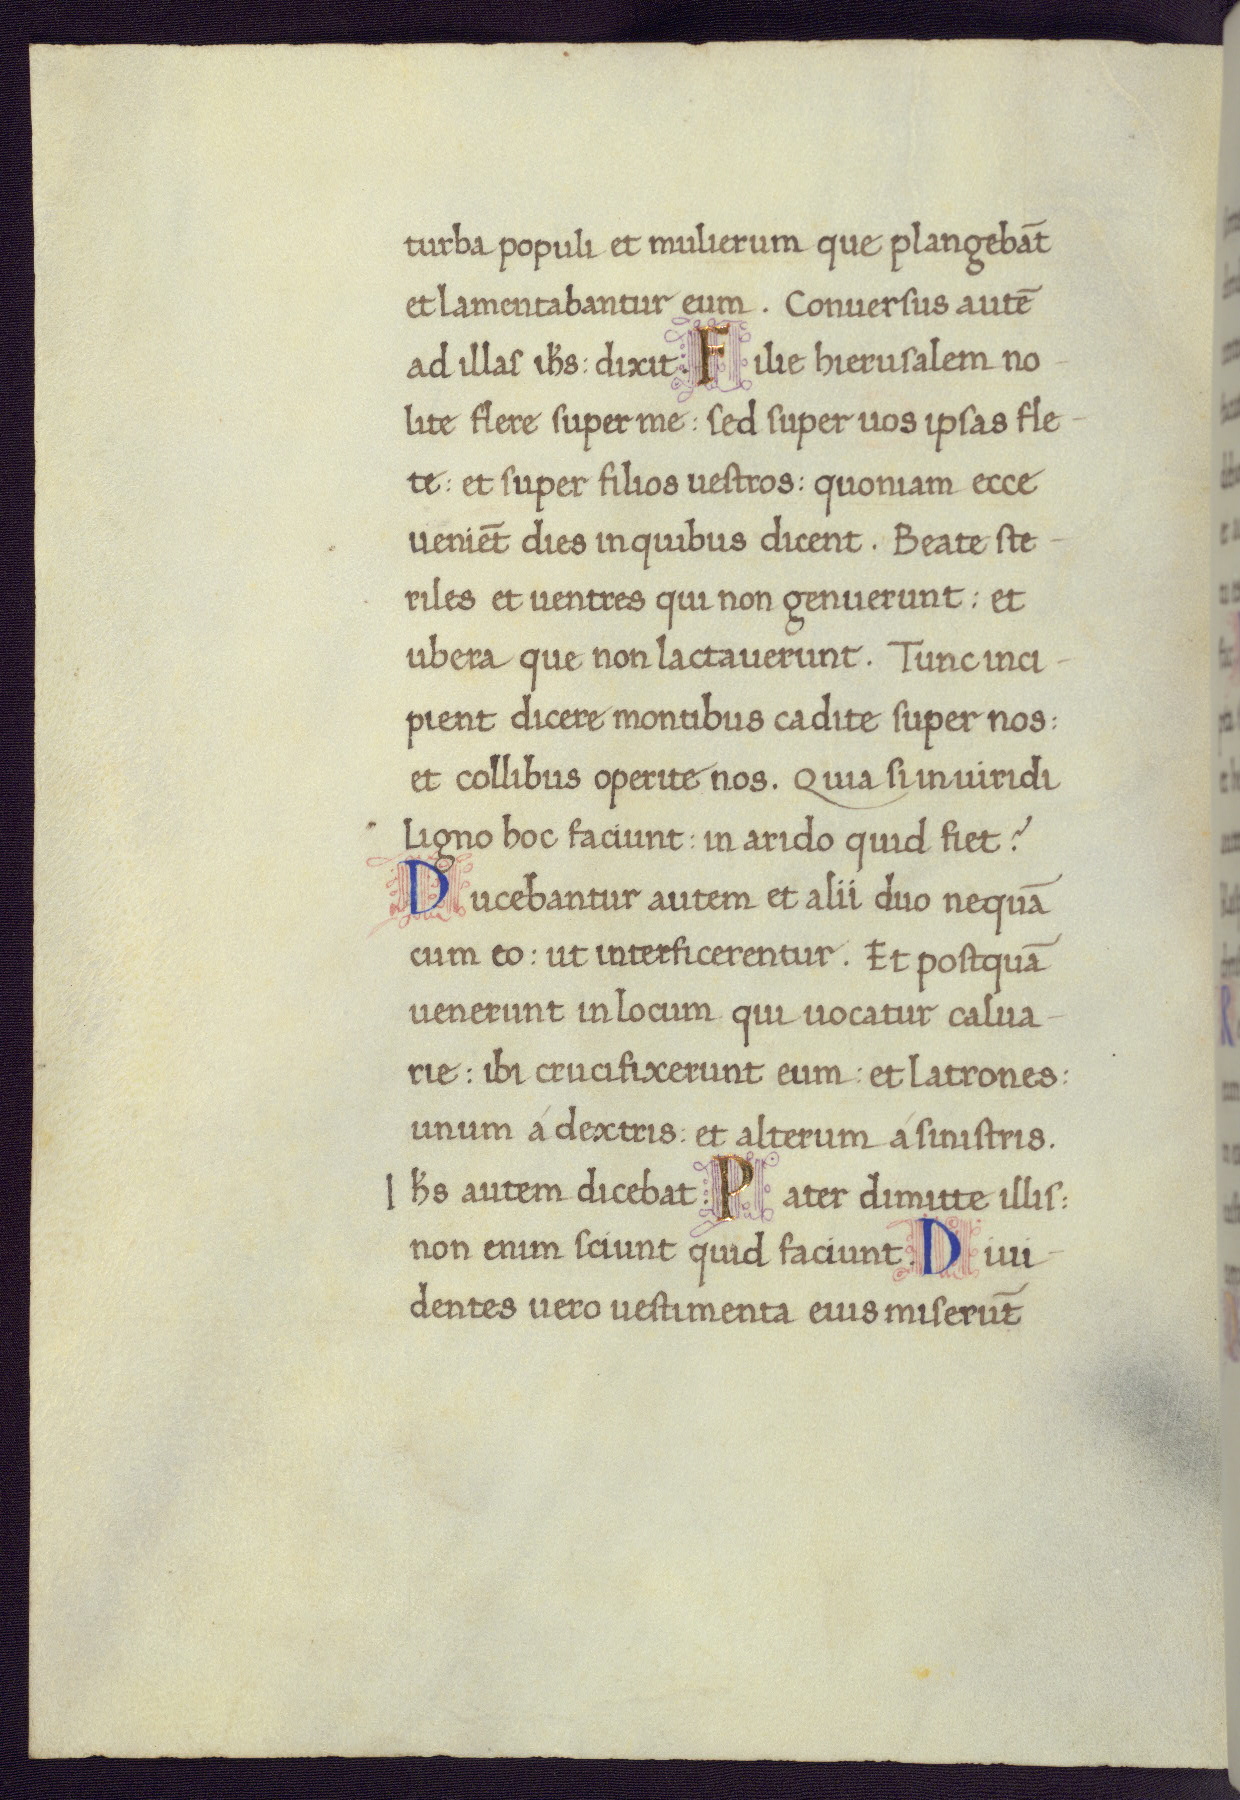 turba populi et mulierum que plangebāt
et lamentabantur eum . Conuerſus autē
ad illaſ ihs̄ : dixit . Filie hieruſalem no -
lite flere ſuper me : ſed ſuper uos ipſas fle -
te : et ſuper filios ueſtros : quoniam ecce
ueniēt dies in quibus dicent . Beate ſte -
riles et uentres qui non genuerunt : et
ubera que non lactauerunt . Tunc inci -
pient dicere montibus cadite ſuper nos :
et collibus operite nos . Quia ſi in uiridi
ligno hoc faciunt : in arido quid fiet ?
Ducebantur autem et alii duo nequā
cum eo : ut interficerentur . Et poſtquā
uenerunt in locum qui uocatur calua -
rie : ibi crucifixerunt eum : et latrones :
unum á dextris : et alterum á ſiniſtris .
Ihs̄ autem dicebat : Pater dimitte illiſ :
non enim ſciunt quid faciunt . Diui -
dentes uero ueſtimenta eius miſerūt